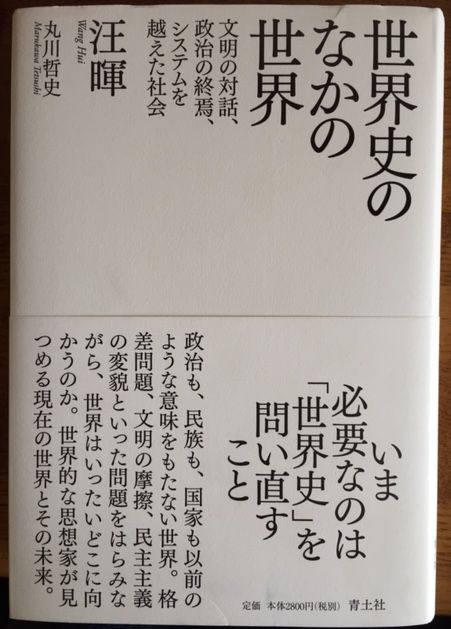 世界史の
なかの
世界
文明の対話、
政治の終焉、
システムを
越えた社会
汪暉
Wang Hui
丸川哲史
Marukawa Tetsushi
いま
必要なのは
「世界史」を
問い直す
こと
政治も、民族も、国家も以前の
ような意味をもたない世界。格
差問題、文明の摩擦、民主主義
の変貌といった問題をはらみな
がら、世界はいったいどこに向
かうのか。世界的な思想家が見
つめる現在の世界とその未来。
定価 本体2800円(税別) 青土社